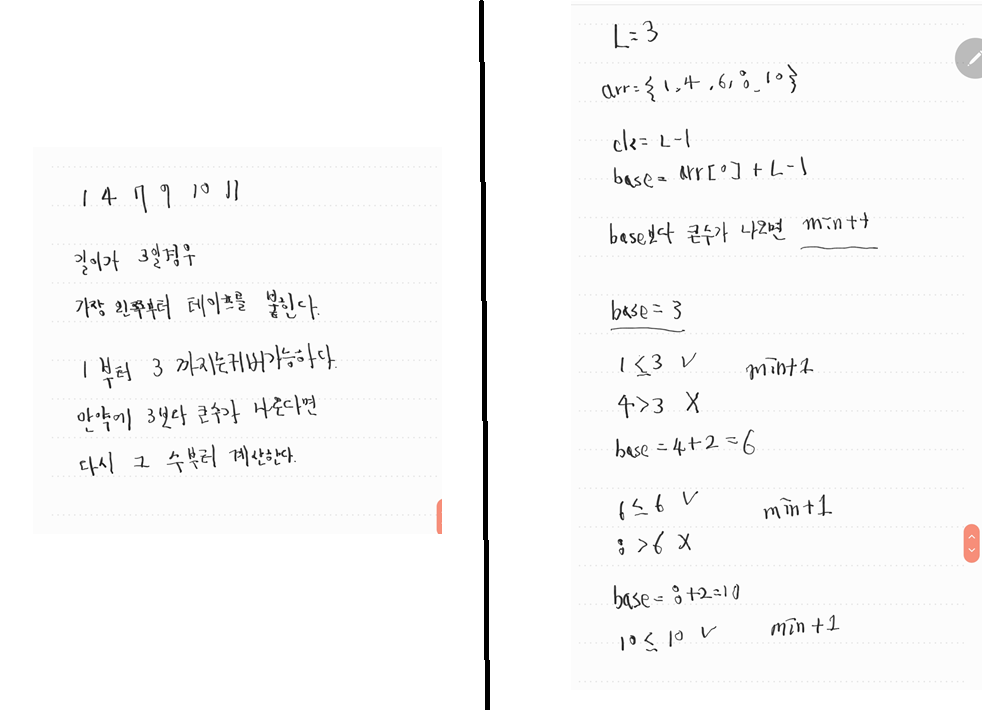 1 4 7 9 10 11
길이가 3일경우
가장 왼쪽부터 테이프를 붙힌다.
1 부터 3 까지는커버가능하다.
만약에 3보다 큰수가 나온다면
다시 그 수부터 계산한다.
L=3
arr={1,4,6,8,10}
ck= L-1
base= arr[0] + L-1
base보다 큰수가 나오면 min++
base=3
1≤3 V min+1
4>3 X
base=4+2=6
6≤6 V min+1
8>6 X
base=8+2=10
10≤10 V min+1